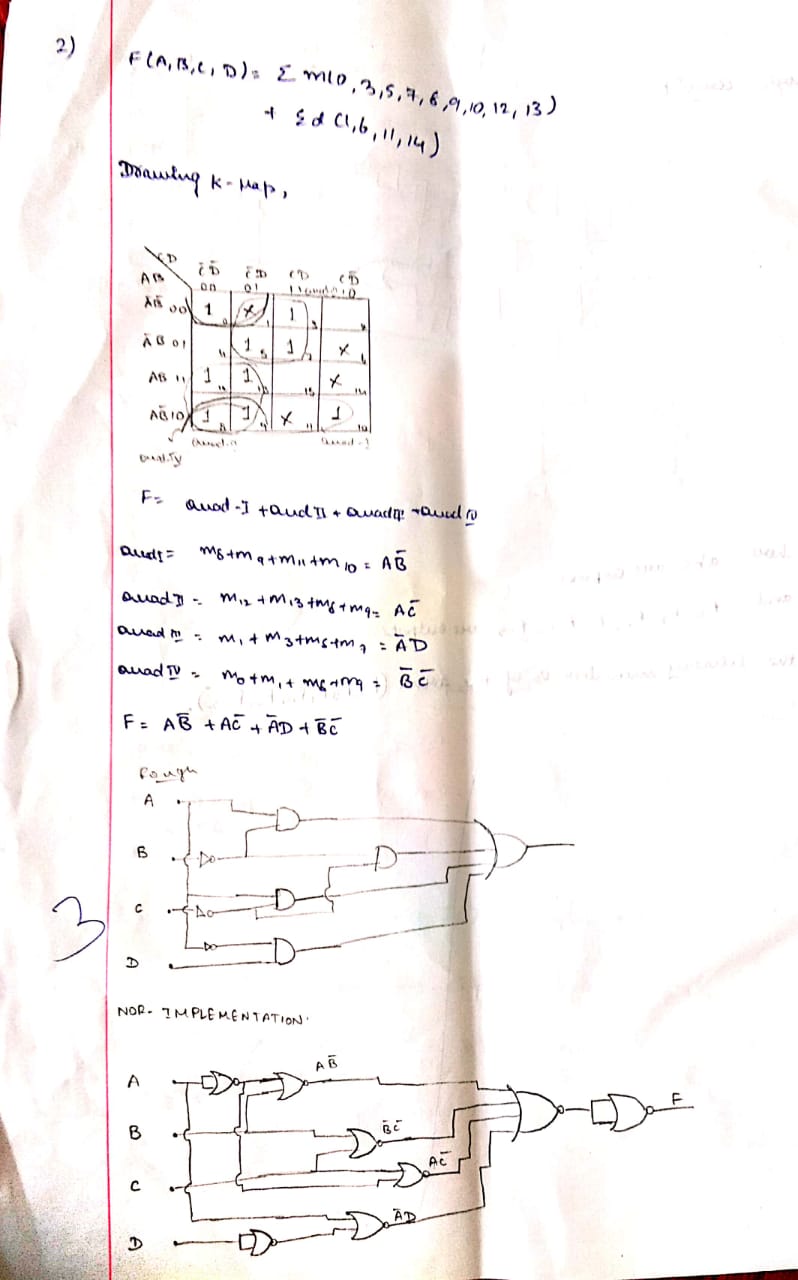 2)
F(A,B,C,D) = Σ m(0,3,5,7,8,9,10,12,13)
+ Σd (1,6,11,14)
Drawing K-Map,
CD
AB
C̄D̄ C̄D CD CD̄
00 01 11 10
ĀB̄ 00 1 X 1
ĀB 01 1 1 X
AB 11 1 1 X
AB̄ 10 1 1 X 1
F = Quad-I + Quad II + Quad III + Quad IV
Quad I = m8+m9+m11+m10 = AB̄
Quad II = m12+m13+m8+m9 = AC̄
Quad III = m1+m3+m5+m7 = ĀD
Quad IV = m0+m1+m8+m9 = B̄C̄
F = AB̄ + AC̄ + ĀD + B̄C̄
Rough
A
B
C
D
3
NOR- IMPLEMENTATION.
A
AB̄
F
B
B̄C̄
AC̄
C
ĀD
D